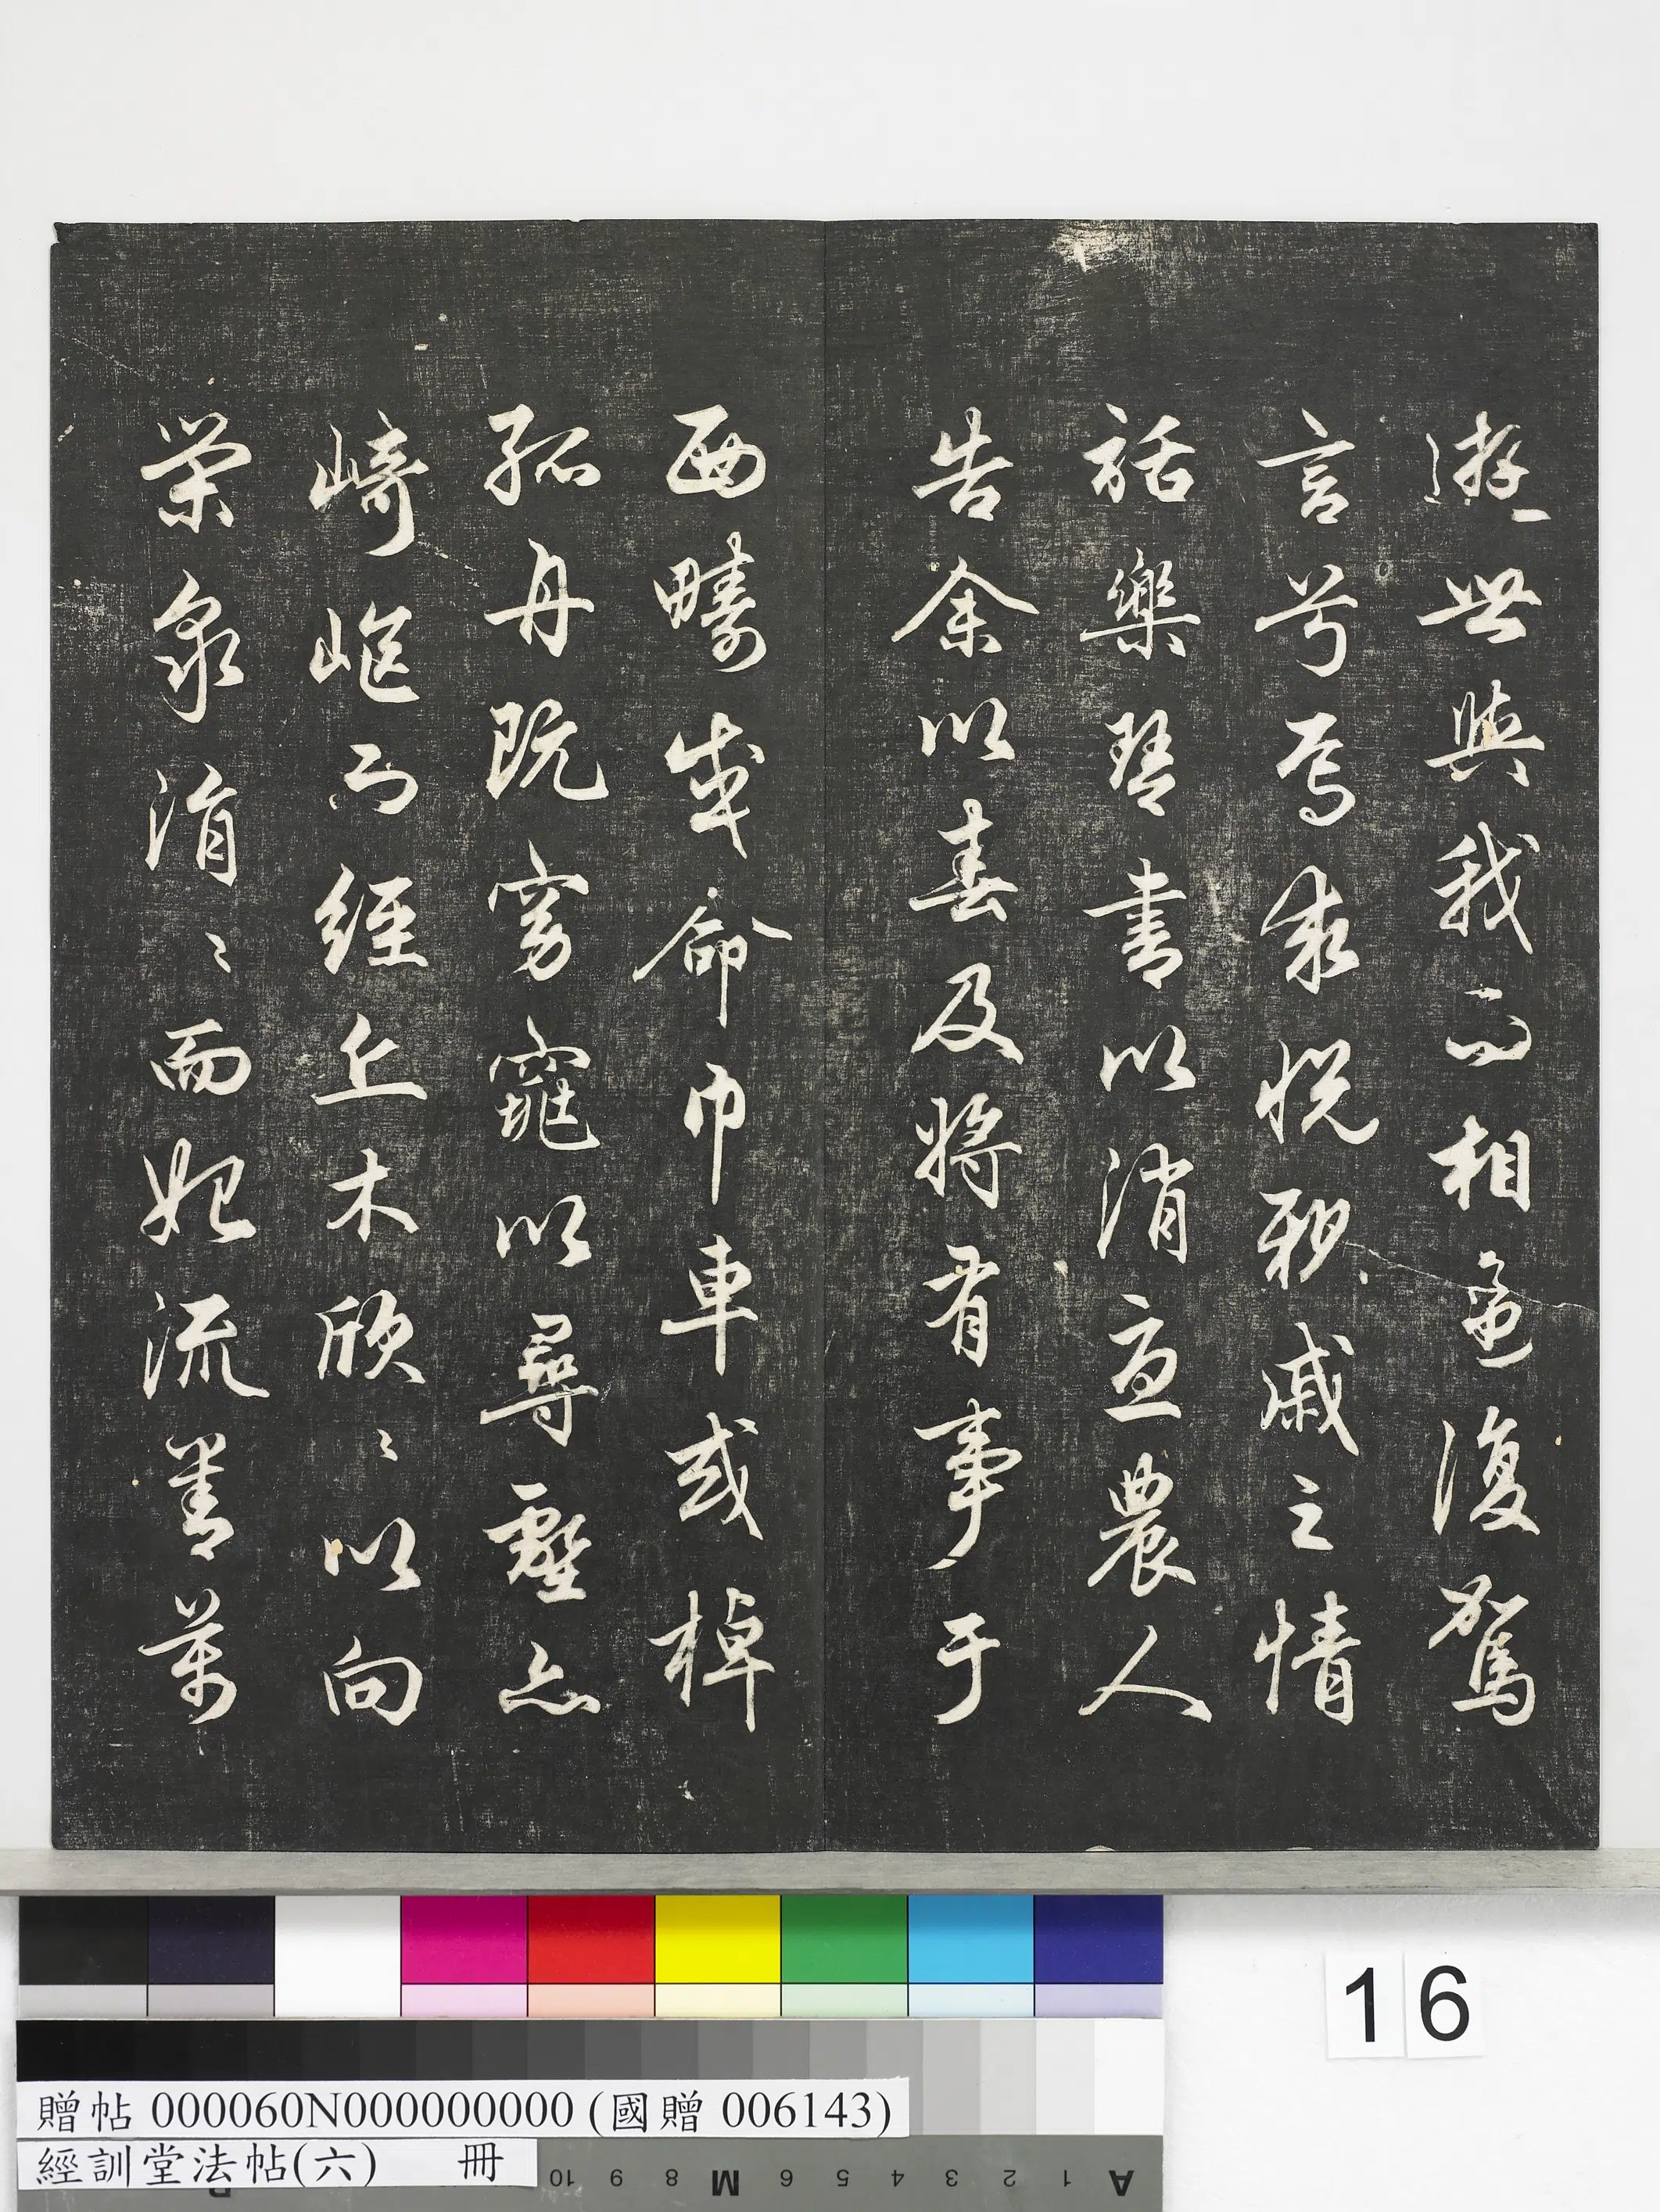 遊世與我而相違復駕
言兮焉求悅親戚之情
話樂琴書以消憂農人
告余以春及將有事于
西疇或命巾車或棹
孤舟既窈窕以尋壑亦
崎嶇而經丘木欣〻以向
榮泉涓〻而始流善萬
16
贈帖 000060N000000000 (國贈 006143)
經訓堂法帖(六) 冊
10 9 8 M 6 5 4 3 2 1 A